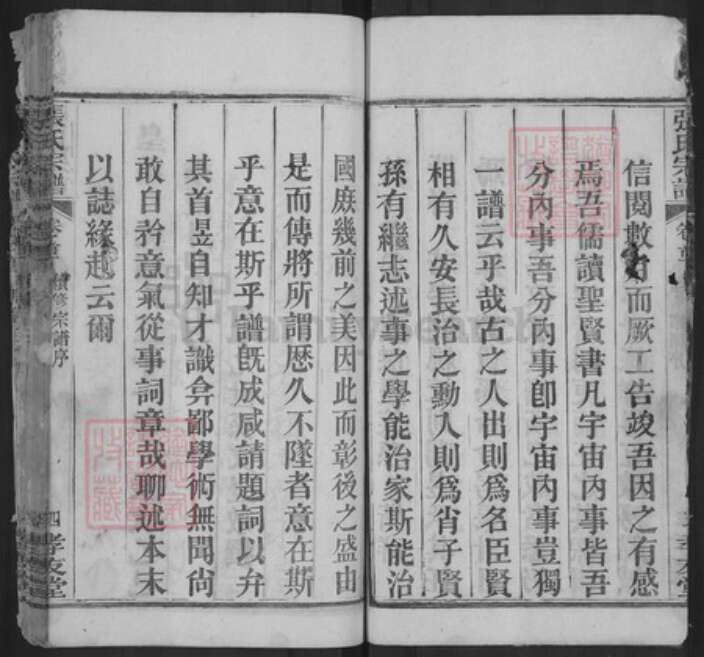 張氏宗譜
信閱數月而厥工告竣吾因之有感
焉吾儒讀聖賢書凡宇宙內事皆吾
分內事吾分內事卽宇宙內事豈獨
一譜云乎哉古之人出則爲名臣賢
相有久安長治之勳入則爲肖子賢
孫有繼志述事之學能治家斯能治
國庶幾前之美因此而彰後之盛由
是而傳將所謂歷久不墜者意在斯
乎意在斯乎譜旣成咸請題詞以弁
其首昱自知才識弇鄙學術無聞尙
敢自矜意氣從事詞章哉聊述本末
以誌緣起云爾
張氏宗譜
卷首
續修宗譜序
四
孝友堂